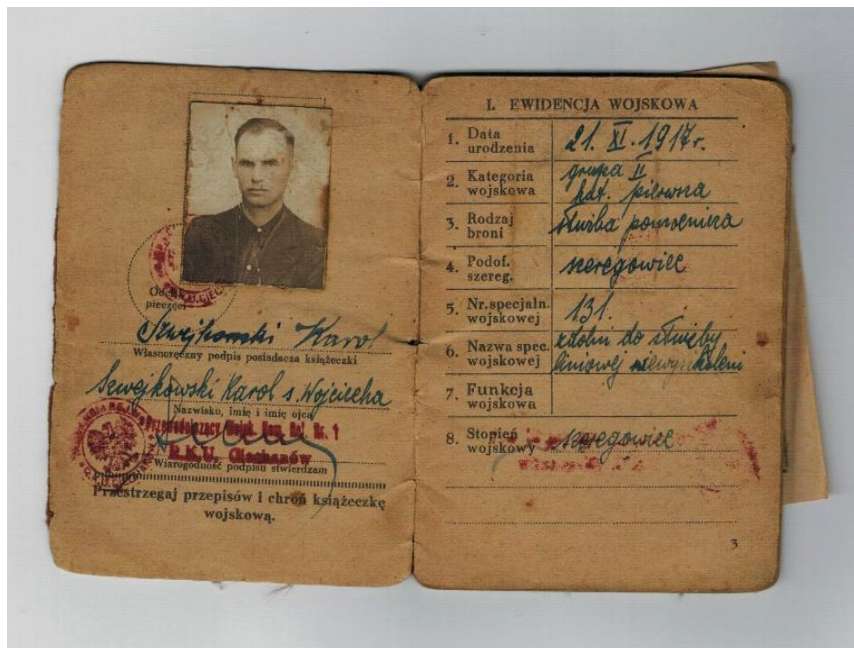 Odcisk
pieczęci
Szwejkowski Karol
Własnoręczny podpis posiadacza książeczki
Szwejkowski Karol s. Wojciecha
Nazwisko, imię i imię ojca
Przewodniczący Wojsk. Kom. Nr. 1
R.K.U. Ciechanów
Wiarogodność podpisu stwierdzam
Przestrzegaj przepisów i chroń książeczkę
wojskową.
I. EWIDENCJA WOJSKOWA
1. Data urodzenia 21. XI. 1917r.
2. Kategoria wojskowa grupa II
kat. pierwsza
3. Rodzaj broni służba pomocnicza
4. Podof. szereg. szeregowiec
5. Nr. specjaln. wojskowej 131.
6. Nazwa spec. wojskowej zdolni do służby
liniowej niewyszkoleni
7. Funkcja wojskowa
8. Stopień wojskowy szeregowiec
3